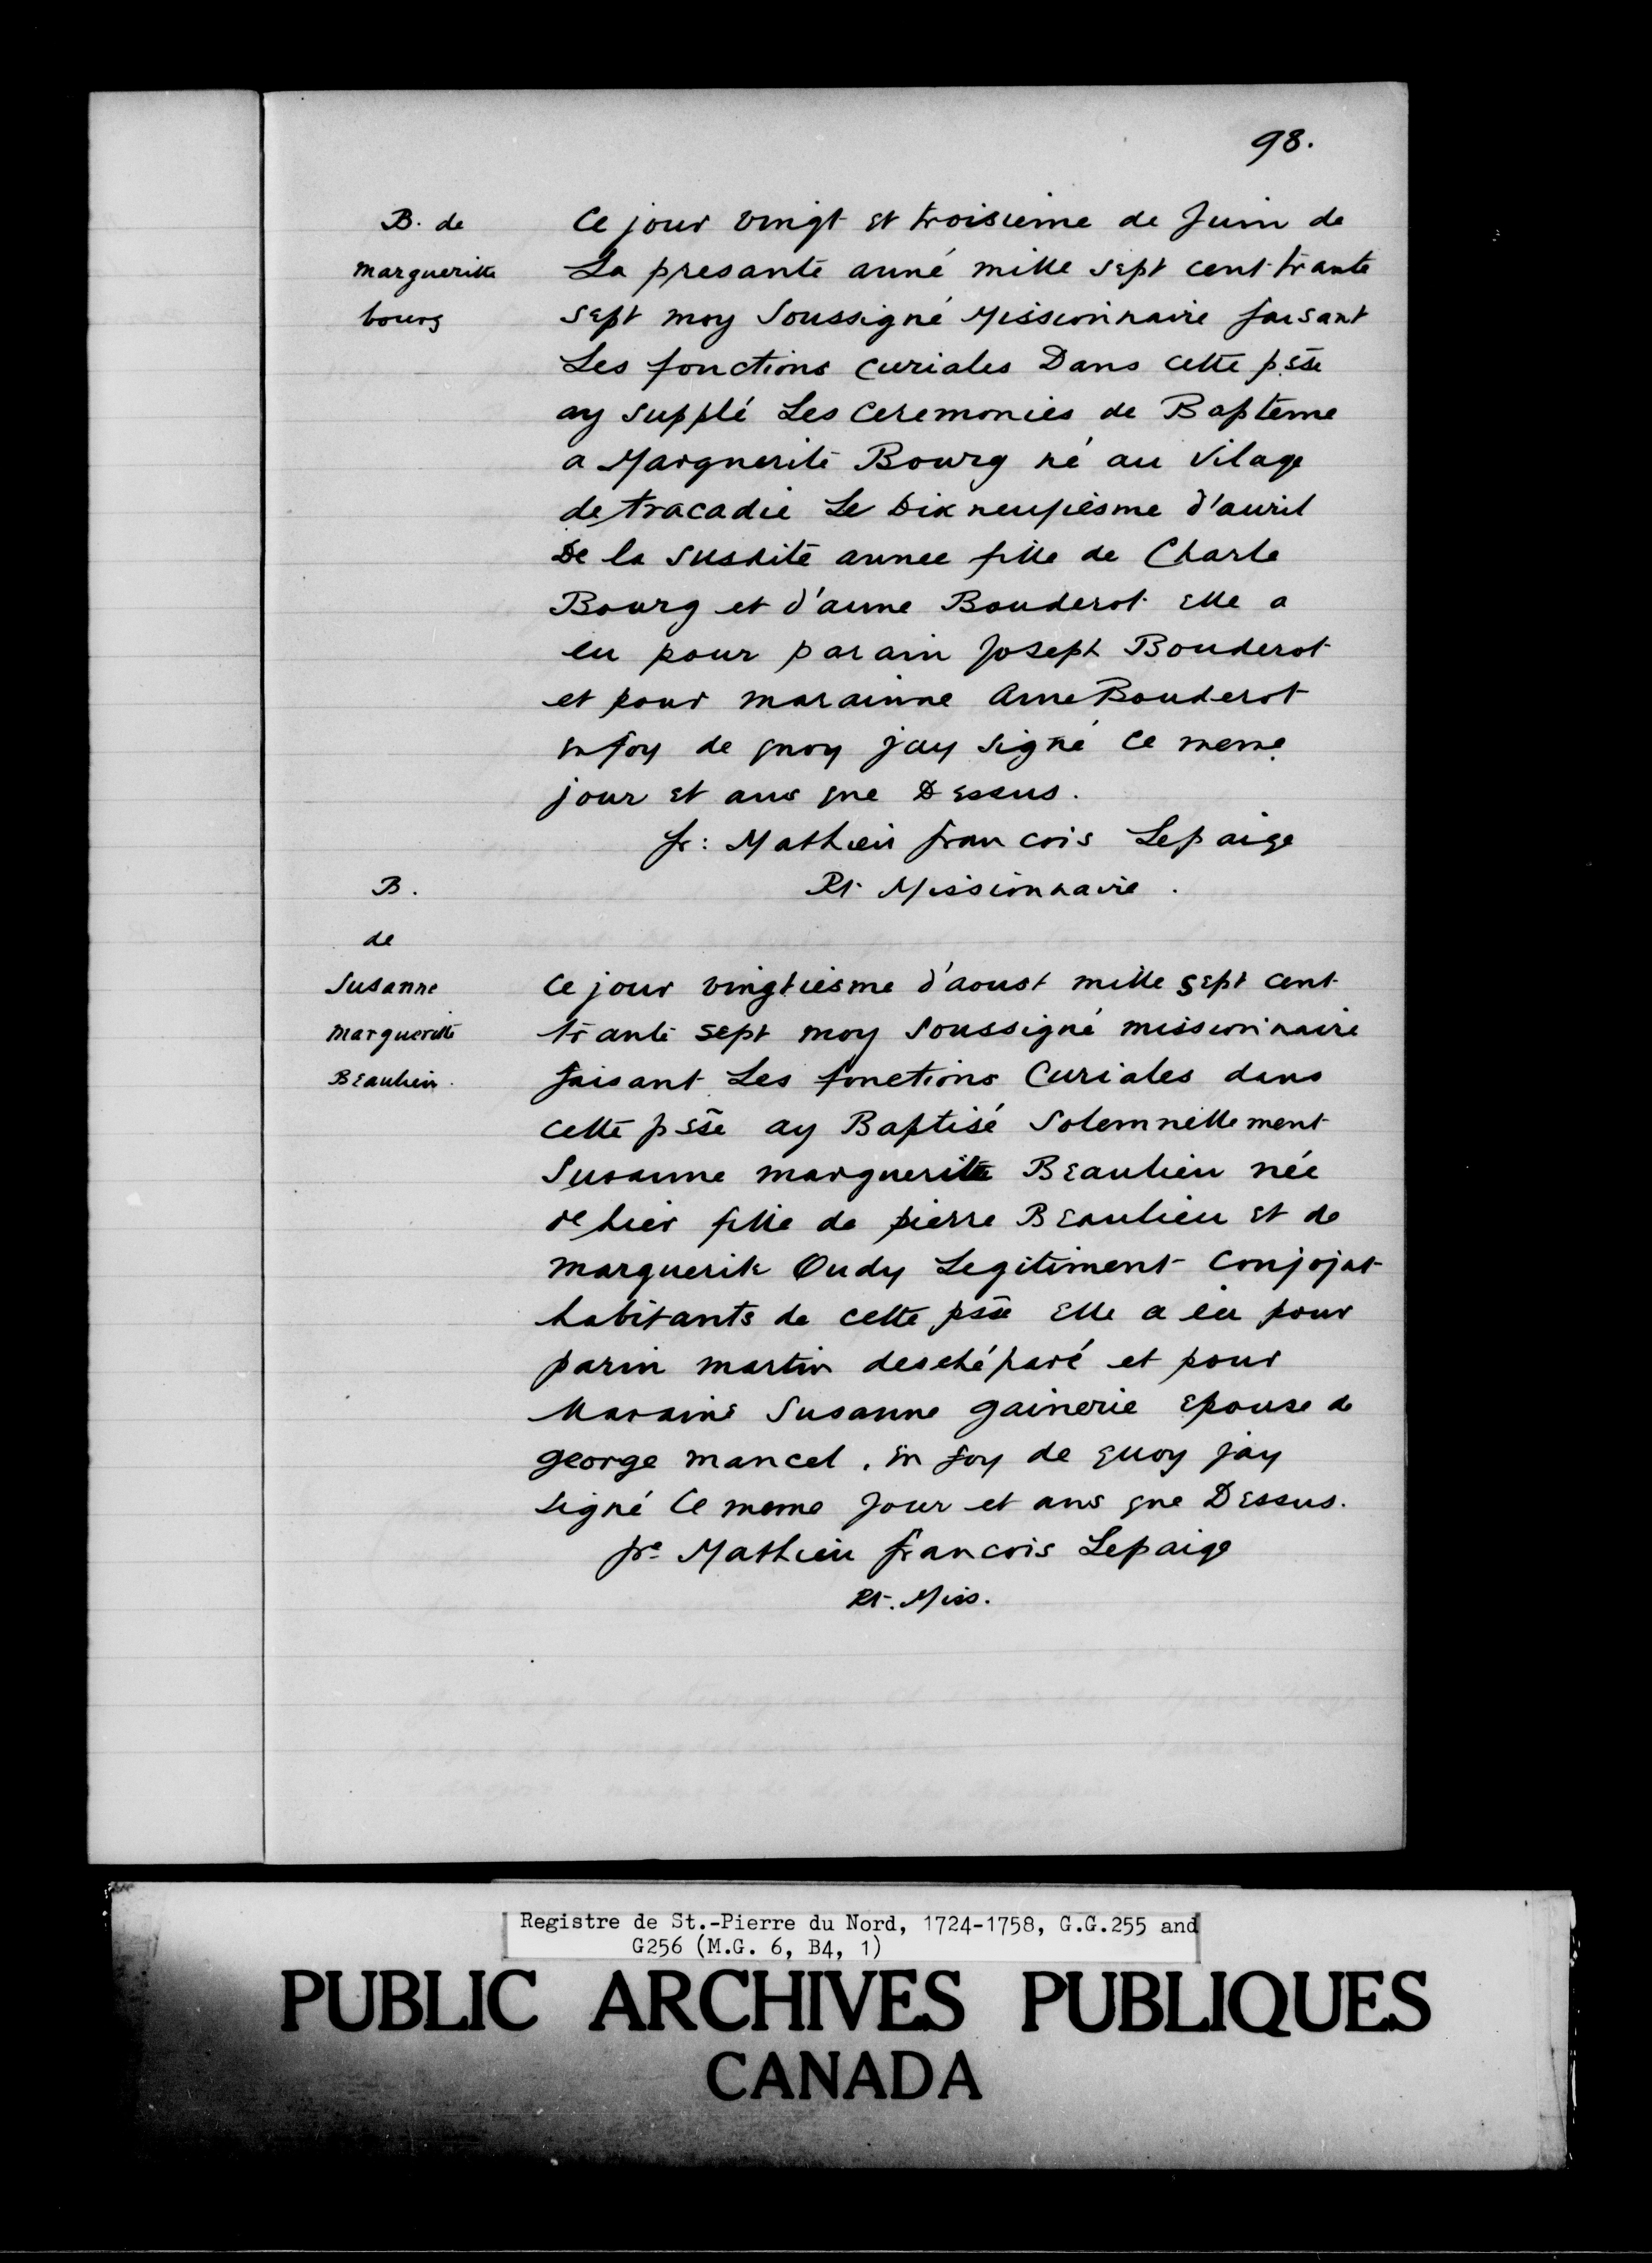 98.
B. de
margueritte
bourg
Ce jour vingt et troisieme de Juin de
La presante anné mille sept cent trante
sept moy Soussigné Missionnaire faisant
Les fonctions curiales Dans cette psse
ay supplé Les Ceremonies de Bapteme
a Marguerite Bourg né au Vilage
de tracadie Le Dix neufiesme d'auril
De la susdite annee fille de Charle
Bourg et d'anne Bouderot elle a
eu pour parain Joseph Bouderot
et pour marainne Anne Bouderot
en foy de quoy jay signé Ce meme
jour et ans que Dessus.
fr: Mathieu francois Lepaige
Rt Missionnaire.
B.
de
Susanne
margueritte
Beaulieu.
Ce jour vingtiesme d'aoust mille sept cent
trante sept moy Soussigné missionnaire
faisant Les fonctions Curiales dans
cette psse ay Baptisé Solemnellement
Susanne margueritte Beaulieu née
de hier fille de pierre Beaulieu et de
marguerite Oudy Legitiment Conjojnt
habitants de cette psse elle a eu pour
parin martin desehéparé et pour
Maraine Susanne gainerie epouse de
george mancel. en foy de quoy jay
signé Ce meme Jour et ans que Dessus.
fre Mathieu francois Lepaige
Rt. Miss.
Registre de St.-Pierre du Nord, 1724-1758, G.G.255 and
G256 (M.G. 6, B4, 1)
PUBLIC ARCHIVES PUBLIQUES
CANADA